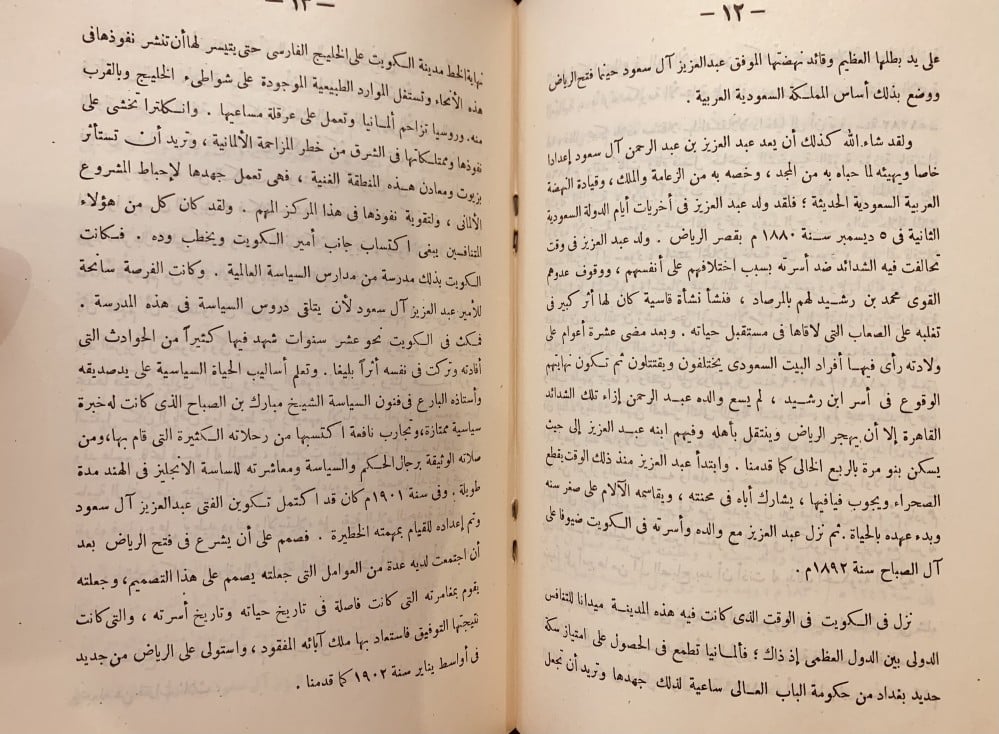 — ١٢ —
على يد بطلها العظيم وقائد نهضتها الموفق عبدالعزيز آل سعود حينما فتح الرياض
ووضع بذلك أساس المملكة السعودية العربية .
ولقد شاء الله كذلك أن يعد عبد العزيز بن عبد الرحمن آل سعود إعدادا
خاصا ويهيئه لما حباه به من المجد ، وخصه به من الزعامة والملك، وقيادة النهضة
العربية السعودية الحديثة ؛ فلقد ولد عبد العزيز فى أخريات أيام الدولة السعودية
الثانية فى ٥ ديسمبر سنة ١٨٨٠ م بقصر الرياض . ولد عبد العزيز فى وقت
تحالفت فيه الشدائد ضد أسرته بسبب اختلافهم على أنفسهم ، ووقوف عدوهم
القوى محمد بن رشيد لهم بالمرصاد ، فنشأ نشأة قاسية كان لها أثر كبير فى
تغلبه على الصعاب التى لاقاها فى مستقبل حياته . وبعد مضى عشرة أعوام على
ولادته رأى فيها أفراد البيت السعودى يختلفون ويقتتلون ثم تكون نهايتهم
الوقوع فى أسر ابن رشيد ، لم يسع والده عبد الرحمن إزاء تلك الشدائد
القاهرة إلا أن يهجر الرياض وينتقل بأهله وفيهم ابنه عبد العزيز إلى حيث
يسكن بنو مرة بالربع الخالى كما قدمنا . وابتدأ عبد العزيز منذ ذلك الوقت يقطع
الصحراء ويجوب فيافيها ، يشارك أباه فى محنته ، ويقاسمه الآلام على صغر سنه
وبدء عهده بالحياة . ثم نزل عبد العزيز مع والده وأسرته فى الكويت ضيوفا على
آل الصباح سنة ١٨٩٢م .
نزل فى الكويت فى الوقت الذى كانت فيه هذه المدينة ميدانا للتنافس
الدولى بين الدول العظمى إذ ذاك ؛ فألمانيا تطمع فى الحصول على امتياز سكة
حديد بغداد من حكومة الباب العالى ساعية لذلك جهدها وتريد أن تجعل
— ١٣ —
نهاية الخط مدينة الكويت على الخليج الفارسى حتى يتيسر لها أن تنشر نفوذها فى
هذه الأنحاء وتستغل الموارد الطبيعية الموجودة على شواطىء الخليج وبالقرب
منه. وروسيا تزاحم ألمانيا وتعمل على عرقلة مساعيها . وانكلترا تخشى على
نفوذها وممتلكاتها فى الشرق من خطر المزاحمة الألمانية ، وتريد أن تستأثر
بزيوت ومعادن هذه المنطقة الغنية ، فهى تعمل جهدها لإحباط المشروع
الألمانى ، ولتقوية نفوذها فى هذا المركز المهم . ولقد كان كل من هؤلاء
المتنافسين يبغى اكتساب جانب أمير الكويت ويخطب وده . فكانت
الكويت بذلك مدرسة من مدارس السياسة العالمية . وكانت الفرصة سانحة
للأمير عبد العزيز آل سعود لأن يتلقى دروس السياسة فى هذه المدرسة .
فمكث فى الكويت نحو عشر سنوات شهد فيها كثيراً من الحوادث التى
أفادته وتركت فى نفسه أثراً بليغا . وتعلم أساليب الحياة السياسية على يد صديقه
وأستاذه البارع فى فنون السياسة الشيخ مبارك بن الصباح الذى كانت له خبرة
سياسية ممتازة، وتجارب نافعة اكتسبها من رحلاته الكثيرة التى قام بها، ومن
صلاته الوثيقة برجال الحكم والسياسة ومعاشرته للساسة الانجليز فى الهند مدة
طويلة . وفى سنة ١٩٠١م كان قد اكتمل تكوين الفتى عبدالعزيز آل سعود
وتم إعداده للقيام بمهمته الخطيرة . فصمم على أن يشرع فى فتح الرياض بعد
أن اجتمعت لديه عدة من العوامل التى جعلته يصمم على هذا التصميم، وجعلته
يقوم بمغامرته التى كانت فاصلة فى تاريخ حياته وتاريخ أسرته ، والتى كانت
نتيجتها التوفيق فاستعاد بها ملك آبائه المفقود ، واستولى على الرياض من جديد
فى أواسط يناير سنة ١٩٠٢ كما قدمنا .